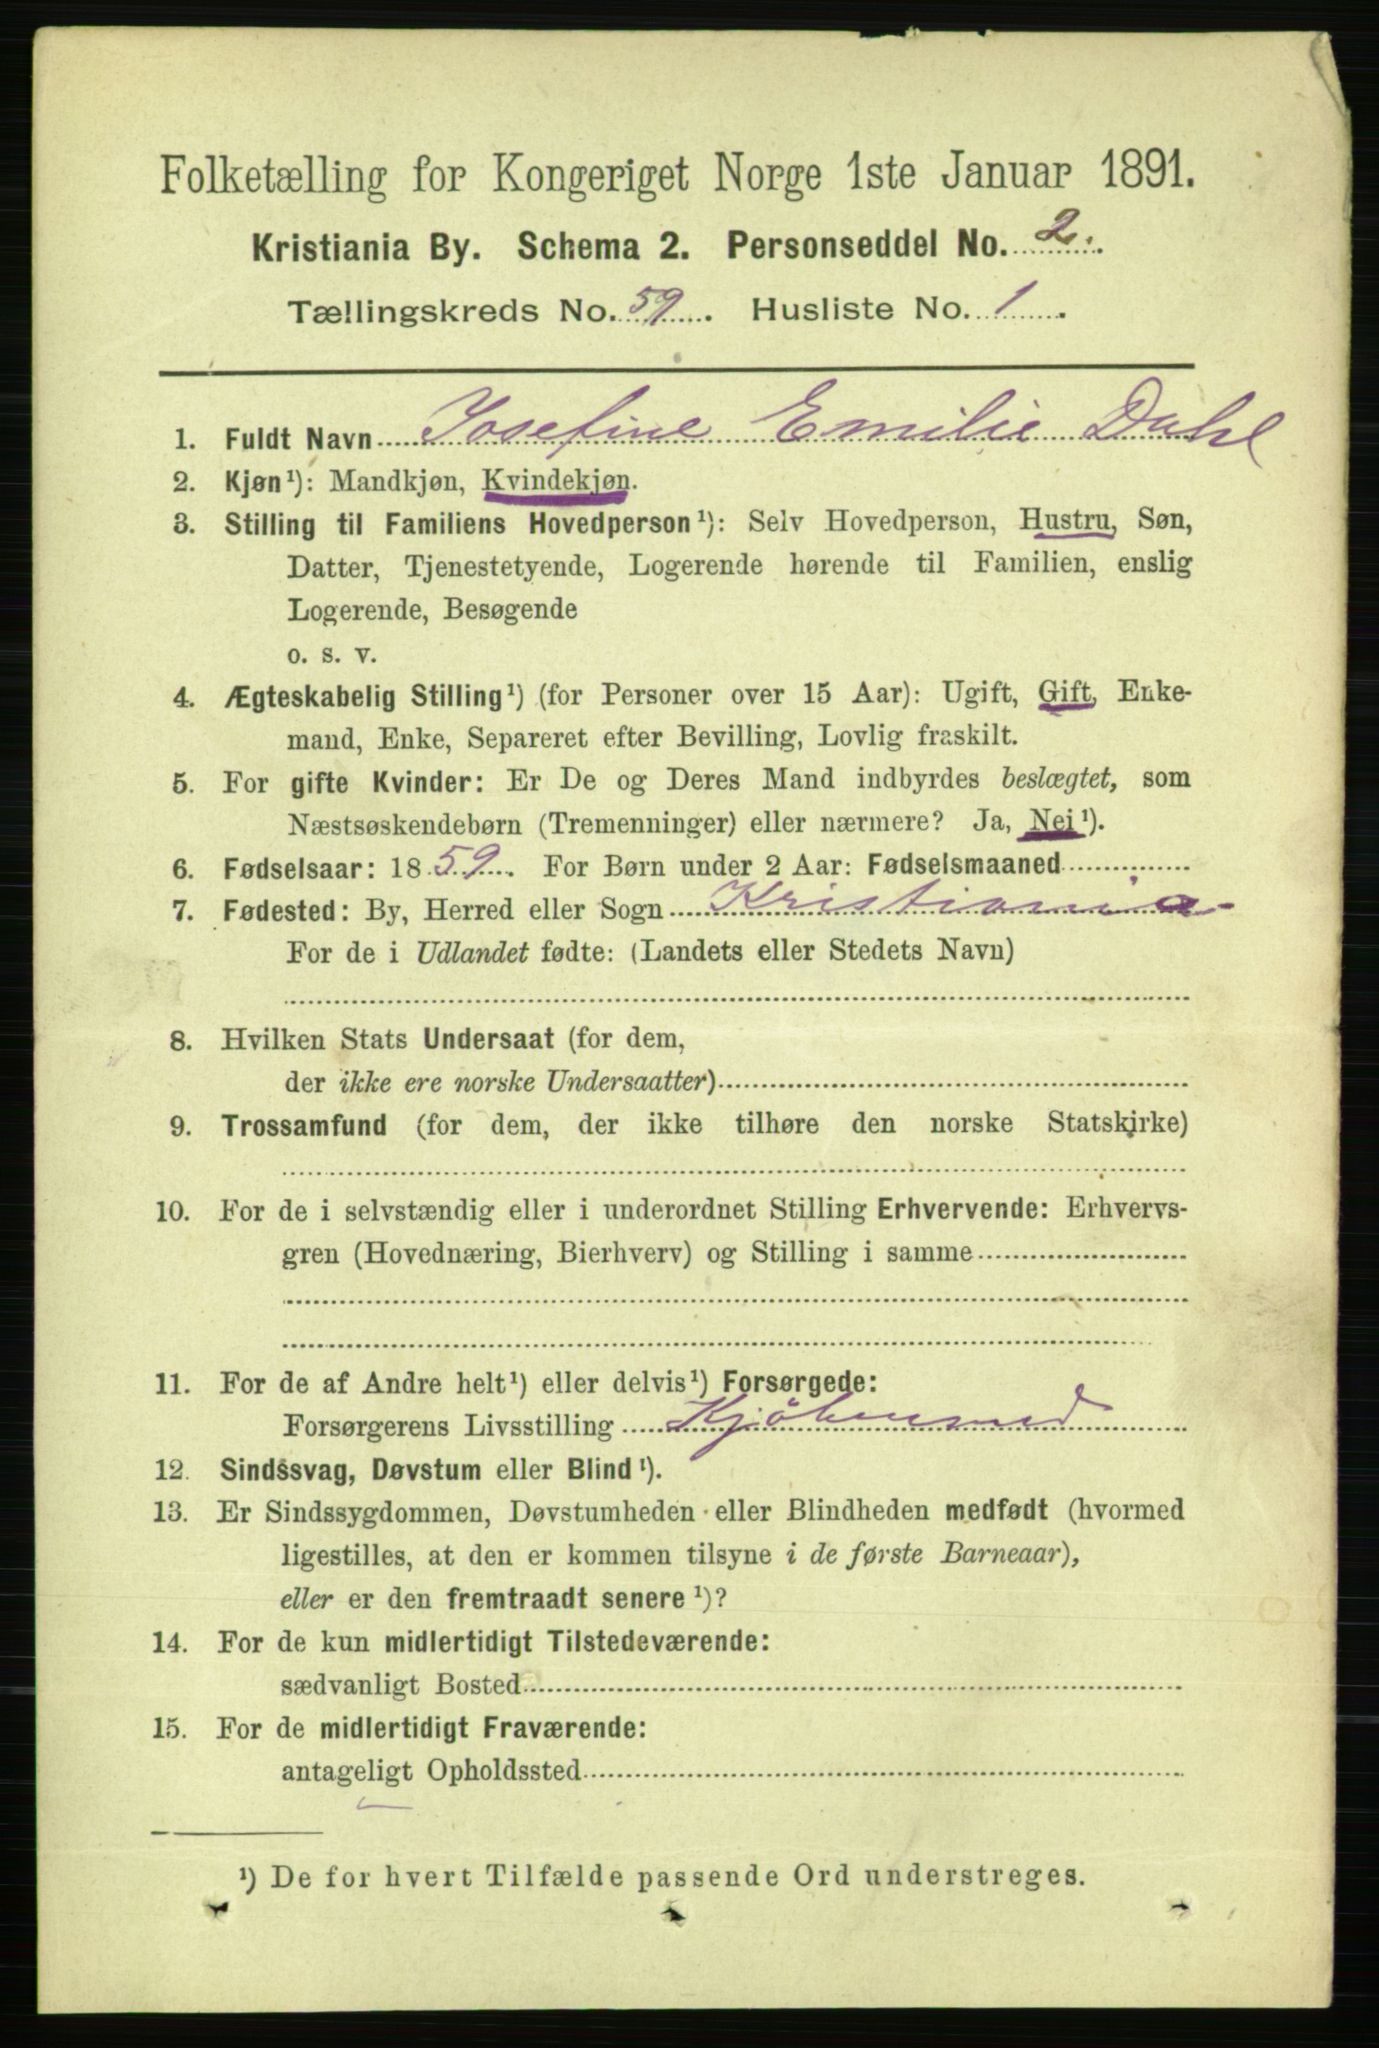 Folketælling for Kongeriget Norge 1ste Januar 1891.
Kristiania By. Schema 2. Personseddel No. 2.
Tællingskreds No. 59. Husliste No. 1.
1. Fuldt Navn Josefine Emilie Dahl
2. Kjøn¹): Mandkjøn, Kvindekjøn.
3. Stilling til Familiens Hovedperson¹): Selv Hovedperson, Hustru, Søn,
Datter, Tjenestetyende, Logerende hørende til Familien, enslig
Logerende, Besøgende
o. s. v.
4. Ægteskabelig Stilling¹) (for Personer over 15 Aar): Ugift, Gift, Enke-
mand, Enke, Separeret efter Bevilling, Lovlig fraskilt.
5. For gifte Kvinder: Er De og Deres Mand indbyrdes beslægtet, som
Næstsøskendebørn (Tremenninger) eller nærmere? Ja, Nei¹).
6. Fødselsaar: 1859. For Børn under 2 Aar: Fødselsmaaned
7. Fødested: By, Herred eller Sogn Kristiania
For de i Udlandet fødte: (Landets eller Stedets Navn)
8. Hvilken Stats Undersaat (for dem,
der ikke ere norske Undersaatter)
9. Trossamfund (for dem, der ikke tilhøre den norske Statskirke)
10. For de i selvstændig eller i underordnet Stilling Erhvervende: Erhvervs-
gren (Hovednæring, Bierhverv) og Stilling i samme
11. For de af Andre helt¹) eller delvis¹) Forsørgede:
Forsørgerens Livsstilling Kjöbmand
12. Sindssvag, Døvstum eller Blind¹).
13. Er Sindssygdommen, Døvstumheden eller Blindheden medfødt (hvormed
ligestilles, at den er kommen tilsyne i de første Barneaar),
eller er den fremtraadt senere¹)?
14. For de kun midlertidigt Tilstedeværende:
sædvanligt Bosted
15. For de midlertidigt Fraværende:
antageligt Opholdssted
¹) De for hvert Tilfælde passende Ord understreges.